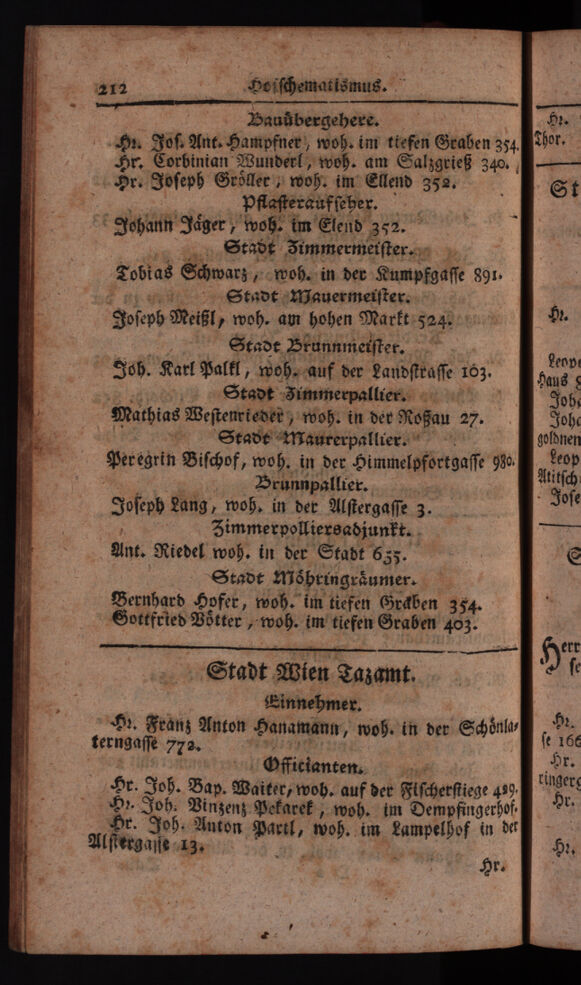 212 Hofschematismus.
Bauübergehere.
Hr. Jos. Ant. Hampfner, woh. im tiefen Graben 354.
Hr. Corbinian Wunderl, woh. am Salzgrieß 340.
Hr. Joseph Gröller, woh. im Ellend 352.
Pflasteraufseher.
Johann Jäger, woh. im Elend 352.
Stadt Zimmermeister.
Tobias Schwarz, woh. in der Kumpfgasse 891.
Stadt Mauermeister.
Joseph Meißl, woh. am hohen Markt 524.
Stadt Brunnmeister.
Joh. Karl Palkl, woh. auf der Landstrasse 103.
Stadt Zimmerpallier.
Mathias Westenrieder, woh. in der Roßau 27.
Stadt Maurerpallier.
Peregrin Bischof, woh. in der Himmelpfortgasse 980.
Brunnpallier.
Joseph Lang, woh. in der Alstergasse 3.
Zimmerpolliersadjunkt.
Ant. Riedel woh. in der Stadt 655.
Stadt Möhringräumer.
Bernhard Hofer, woh. im tiefen Graben 354.
Gottfried Bötter, woh. im tiefen Graben 403.
Stadt Wien Tazamt.
Einnehmer.
Hr. Franz Anton Hanamann, woh. in der Schönla-
terngasse 772.
Officianten.
Hr. Joh. Bap. Waiter, woh. auf der Fischerstiege 429.
Hr. Joh. Vinzenz Pekarek, woh. im Dempfingerhof.
Hr. Joh. Anton Partl, woh. im Lampelhof in der
Alstergasse 13.
Hr.
Hr.
Thor.
St
Hr.
Leopo
Haus
Joha
Joha
goldnen
Leop
Altisch
Jose
Herr
Hr.
se 166
Hr.
ringerg
Hr.
Hr.